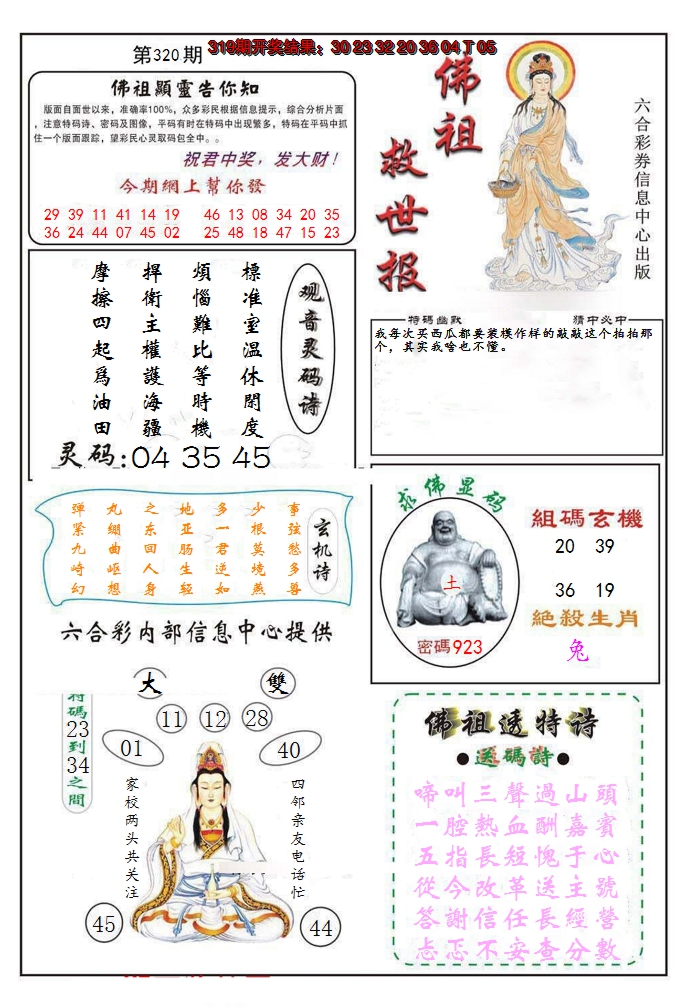 第320期
319期开奖结果：30 23 32 20 36 04 T 05
佛祖顯靈告你知
版面自面世以来，准确率100%，众多彩民根据信息提示，综合分析片面
，注意特码诗、密码及图像，平码有时在特码中出现繁多，特码在平码中抓
住一个版面跟踪，望彩民心灵取码包全中。。
祝君中奖，发大财！
今期網上幫你發
29 39 11 41 14 19 46 13 08 34 20 35
36 24 44 07 45 02 25 48 18 47 15 23
佛祖
救世报
六合彩券信息中心出版
观音灵码诗
標准室温休閑度
煩惱難比等時機
捍衛主權護海疆
摩擦四起爲油田
灵码:04 35 45
特碼幽默 猜中必中
我每次买西瓜都要装模作样的敲敲这个拍拍那
个，其实我啥也不懂。
玄机诗
事弦愁多兽
少根莫境燕
多一君逆如
地亚肠生轻
之东回人身
丸绷曲岖想
弹紧九崎幻
六合彩内部信息中心提供
求佛显码
土
密碼923
組碼玄機
20 39
36 19
絶殺生肖
兔
大 雙
特碼23到34之間
11 12 28
01 40
家校两头共关注
四邻亲友电话忙
45 44
佛祖透特诗
●送碼詩●
啼叫三聲過山頭
一腔熱血酬嘉賓
五指長短愧于心
從今改革送主號
答謝信任長經營
忐忑不安查分數